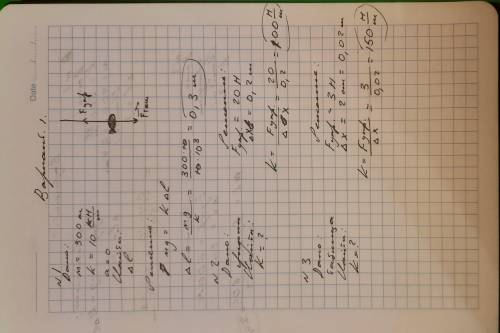 Вариант 1.
N 1
Дано:
m = 300 кг
k = 10 кН/м
a = 0
Найти:
Δl
Fупр
Fтяж
Решение:
mg = kΔl
Δl = mg/k = 300·10/10·10³ = 0,3 м
N 2
Дано:
график
Найти:
k = ?
Решение:
Fупр = 20 Н
Δx = 0,2 м
k = Fупр/Δx = 20/0,2 = 100 Н/м
N 3
Дано:
Таблица
Найти:
k = ?
Решение:
Fупр = 3 Н
Δx = 2 см = 0,02 м
k = Fупр/Δx = 3/0,02 = 150 Н/м
Date